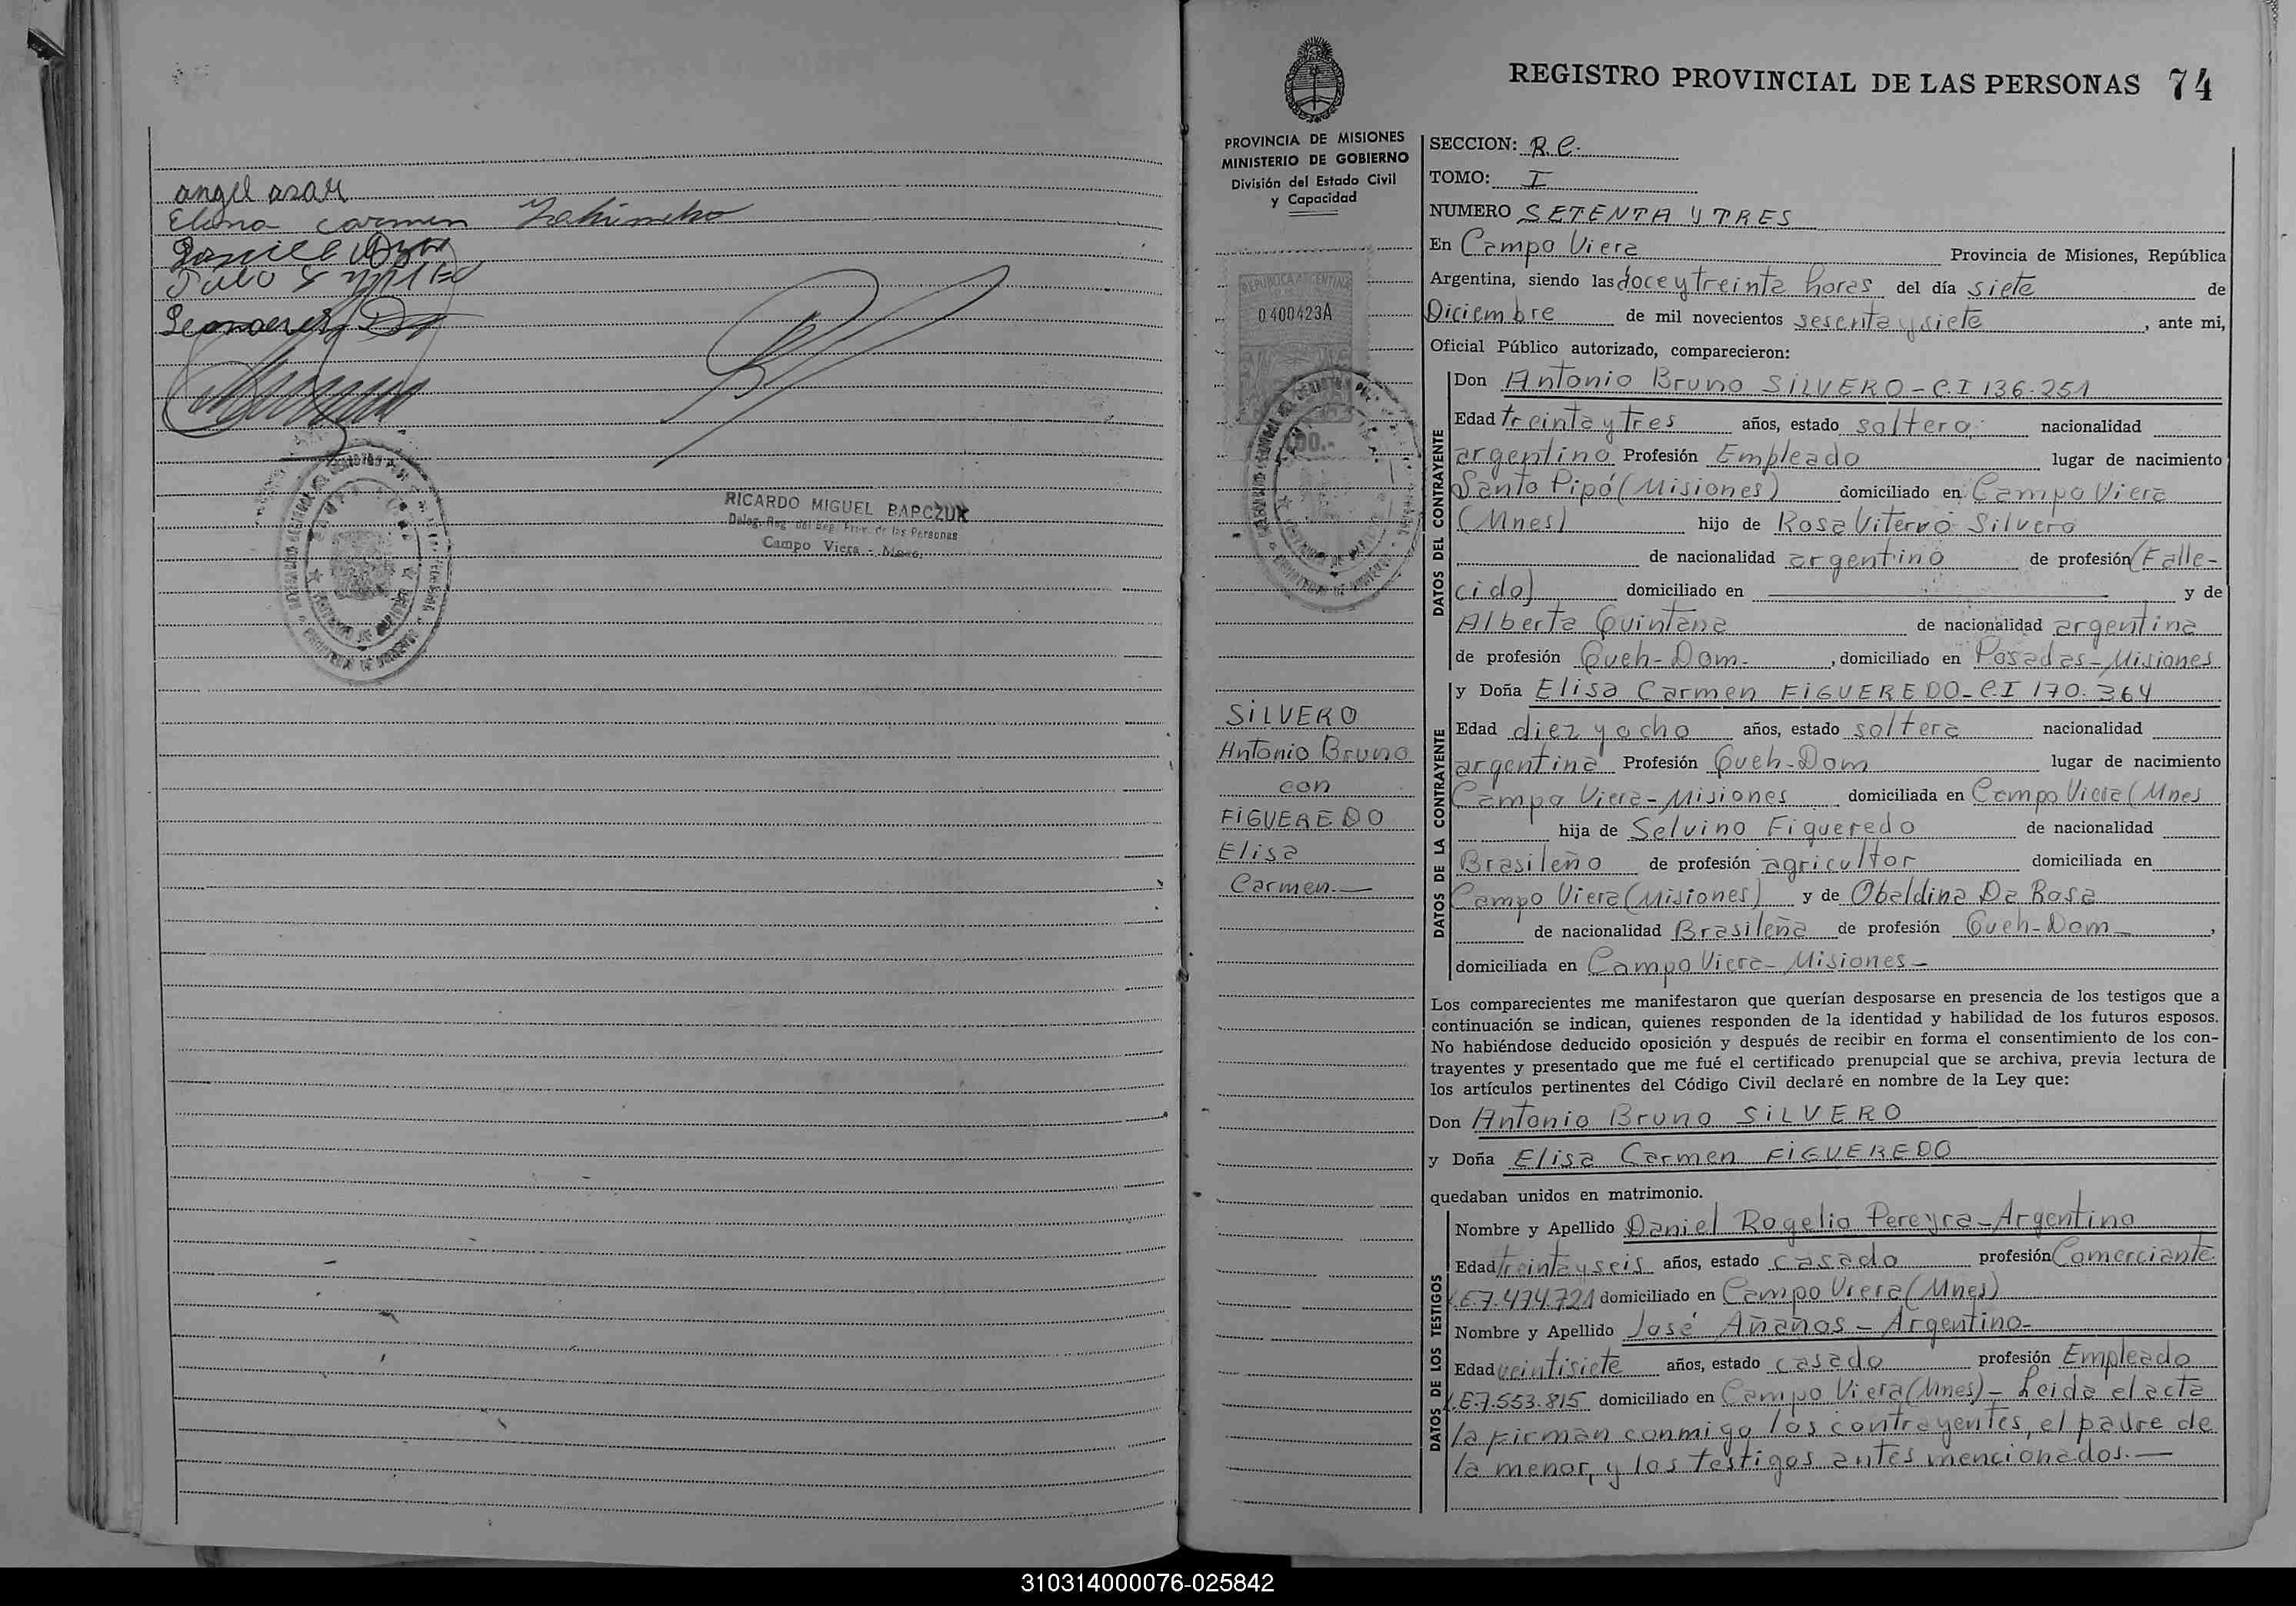 angel asar
Elena Carmen
RICARDO MIGUEL BARCZUK
Deleg. Reg. del Reg. Prov. de las Personas
Campo Viera - Mnes.
REGISTRO PROVINCIAL DE LAS PERSONAS 74
PROVINCIA DE MISIONES
MINISTERIO DE GOBIERNO
División del Estado Civil
y Capacidad
REPUBLICA ARGENTINA
0400423A
SILVERO
Antonio Bruno
con
FIGUEREDO
Elisa
Carmen.—
SECCION: R.C.
TOMO: I
NUMERO SETENTA Y TRES
En Campo Viera Provincia de Misiones, República
Argentina, siendo las doce y treinta horas del día siete de
Diciembre de mil novecientos sesenta y siete, ante mi,
Oficial Público autorizado, comparecieron:
DATOS DEL CONTRAYENTE
Don Antonio Bruno SILVERO - C.I 136.251
Edad treinta y tres años, estado soltero, nacionalidad
argentino Profesión Empleado lugar de nacimiento
Santo Pipó (Misiones) domiciliado en Campo Viera
(Mnes) hijo de Rosa Vitervo Silvero
de nacionalidad argentino de profesión (Falle-
cido) domiciliado en — y de
Alberta Quintana de nacionalidad argentina
de profesión Queh-Dom-, domiciliado en Posadas-Misiones
DATOS DE LA CONTRAYENTE
y Doña Elisa Carmen FIGUEREDO - C.I 170.364
Edad diez y ocho años, estado soltera nacionalidad
argentina Profesión Queh-Dom lugar de nacimiento
Campo Viera-Misiones domiciliada en Campo Viera (Mnes
hija de Selvino Figueredo de nacionalidad
Brasileño de profesión agricultor domiciliada en
Campo Viera (Misiones) y de Obaldina Da Rosa
de nacionalidad Brasileña de profesión Queh-Dom-,
domiciliada en Campo Viera-Misiones-
Los comparecientes me manifestaron que querían desposarse en presencia de los testigos que a
continuación se indican, quienes responden de la identidad y habilidad de los futuros esposos.
No habiéndose deducido oposición y después de recibir en forma el consentimiento de los con-
trayentes y presentado que me fué el certificado prenupcial que se archiva, previa lectura de
los artículos pertinentes del Código Civil declaré en nombre de la Ley que:
Don Antonio Bruno SILVERO
y Doña Elisa Carmen FIGUEREDO
quedaban unidos en matrimonio.
DATOS DE LOS TESTIGOS
Nombre y Apellido Daniel Rogelio Pereyra-Argentino
Edad treinta y seis años, estado casado profesión Comerciante
L.E.7.474.721 domiciliado en Campo Viera (Mnes)
Nombre y Apellido José Añaños - Argentino-
Edad veintisiete años, estado casado profesión Empleado
L.E.7.553.815 domiciliado en Campo Viera (Mnes) - Leida el acta
la firman conmigo los contrayentes, el padre de
la menor, y los testigos antes mencionados.—
310314000076-025842